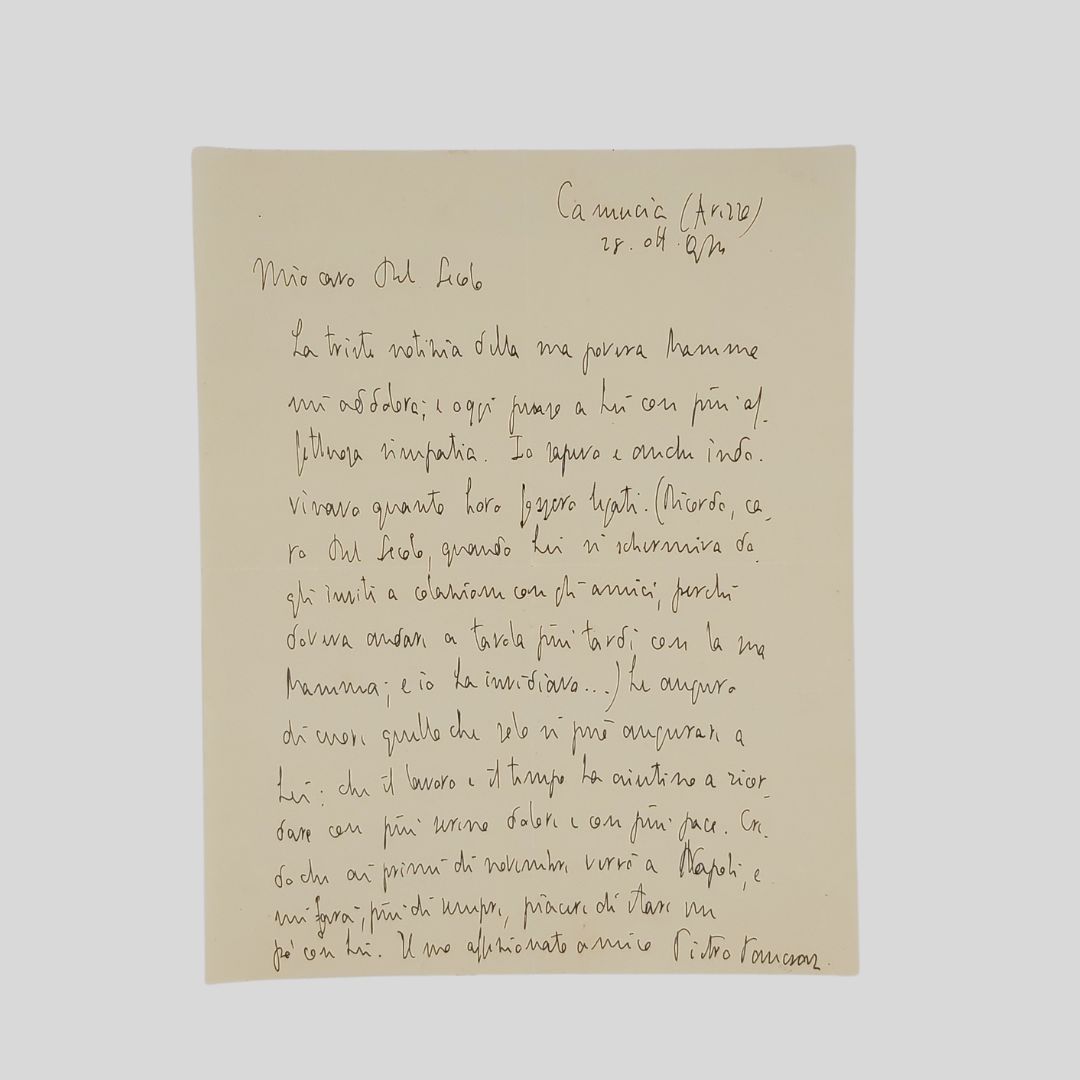 Camucia (Arezzo)
28. ott.
Mio caro Del Secolo
La triste notizia della sua povera Mamma
mi addolora; e oggi penso a Lei con più af-
fettuosa simpatia. Io sapevo e anche indo-
vinavo quanto Loro fossero legati. (Ricordo, ca-
ro Del Secolo, quando Lei si schermiva da-
gli inviti a colazione con gli amici, perchè
doveva andare a tavola più tardi con la sua
Mamma; e io La invidiavo...) Le auguro
di cuore quello che solo si può augurare a
Lei: che il lavoro e il tempo La aiutino a ricor-
dare con più sereno dolore e con più pace. Cre-
do che ai primi di novembre verrò a Napoli, e
mi farà, più di sempre, piacere di stare un
po' con Lei. Il suo affezionato amico Pietro Pancrazi.